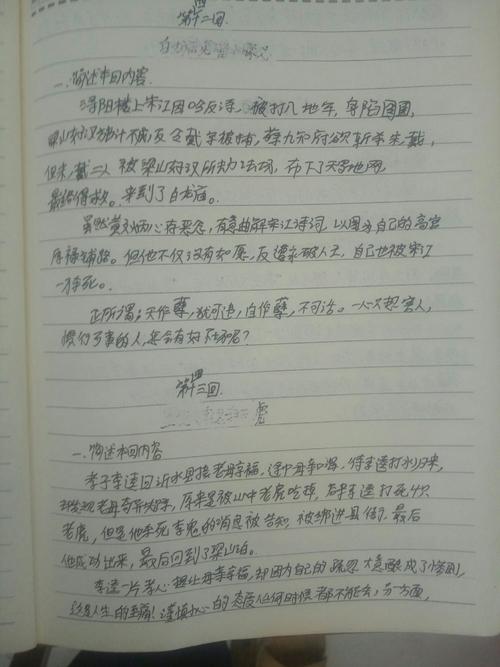 第四十二回
一.简述本回内容
浔阳楼上宋江因吟反诗,被打入地牢,身陷囹圄,
梁山好汉施计不成,反令戴宗被捕,蔡九知府欲斩宋、戴,
但宋,戴二人被梁山好汉所劫法场,布下了天罗地网,
最终得救。来到了白龙庙。
虽然黄文炳心存恶念,有意曲解宋江诗词,以图为自己的高官
厚禄铺路。但他不仅没有如愿,反遭家破人亡,自己也被宋江
一杀死。
正所谓:天作孽,犹可违,自作孽,不可活。一心只想害人,
惯行歹事的人,怎会有好下场呢?
第四十三回
虎
一.简述本回内容
孝子李逵回沂水县接老母享福,途中母亲口渴,待李逵打水归来,
老母,原来是被山中老虎吃掉,李逵打死4只
老虎,但是他杀死李鬼的消息被告知,被绑进县衙,最后
他成功出来,最后回到了梁山泊。
李逵一片孝心,想让母亲享福,却因为自己的疏忽大意酿成了惨剧,
这是人生的至痛!谨慎小心的态度任何时候都不能丢,另一方面,